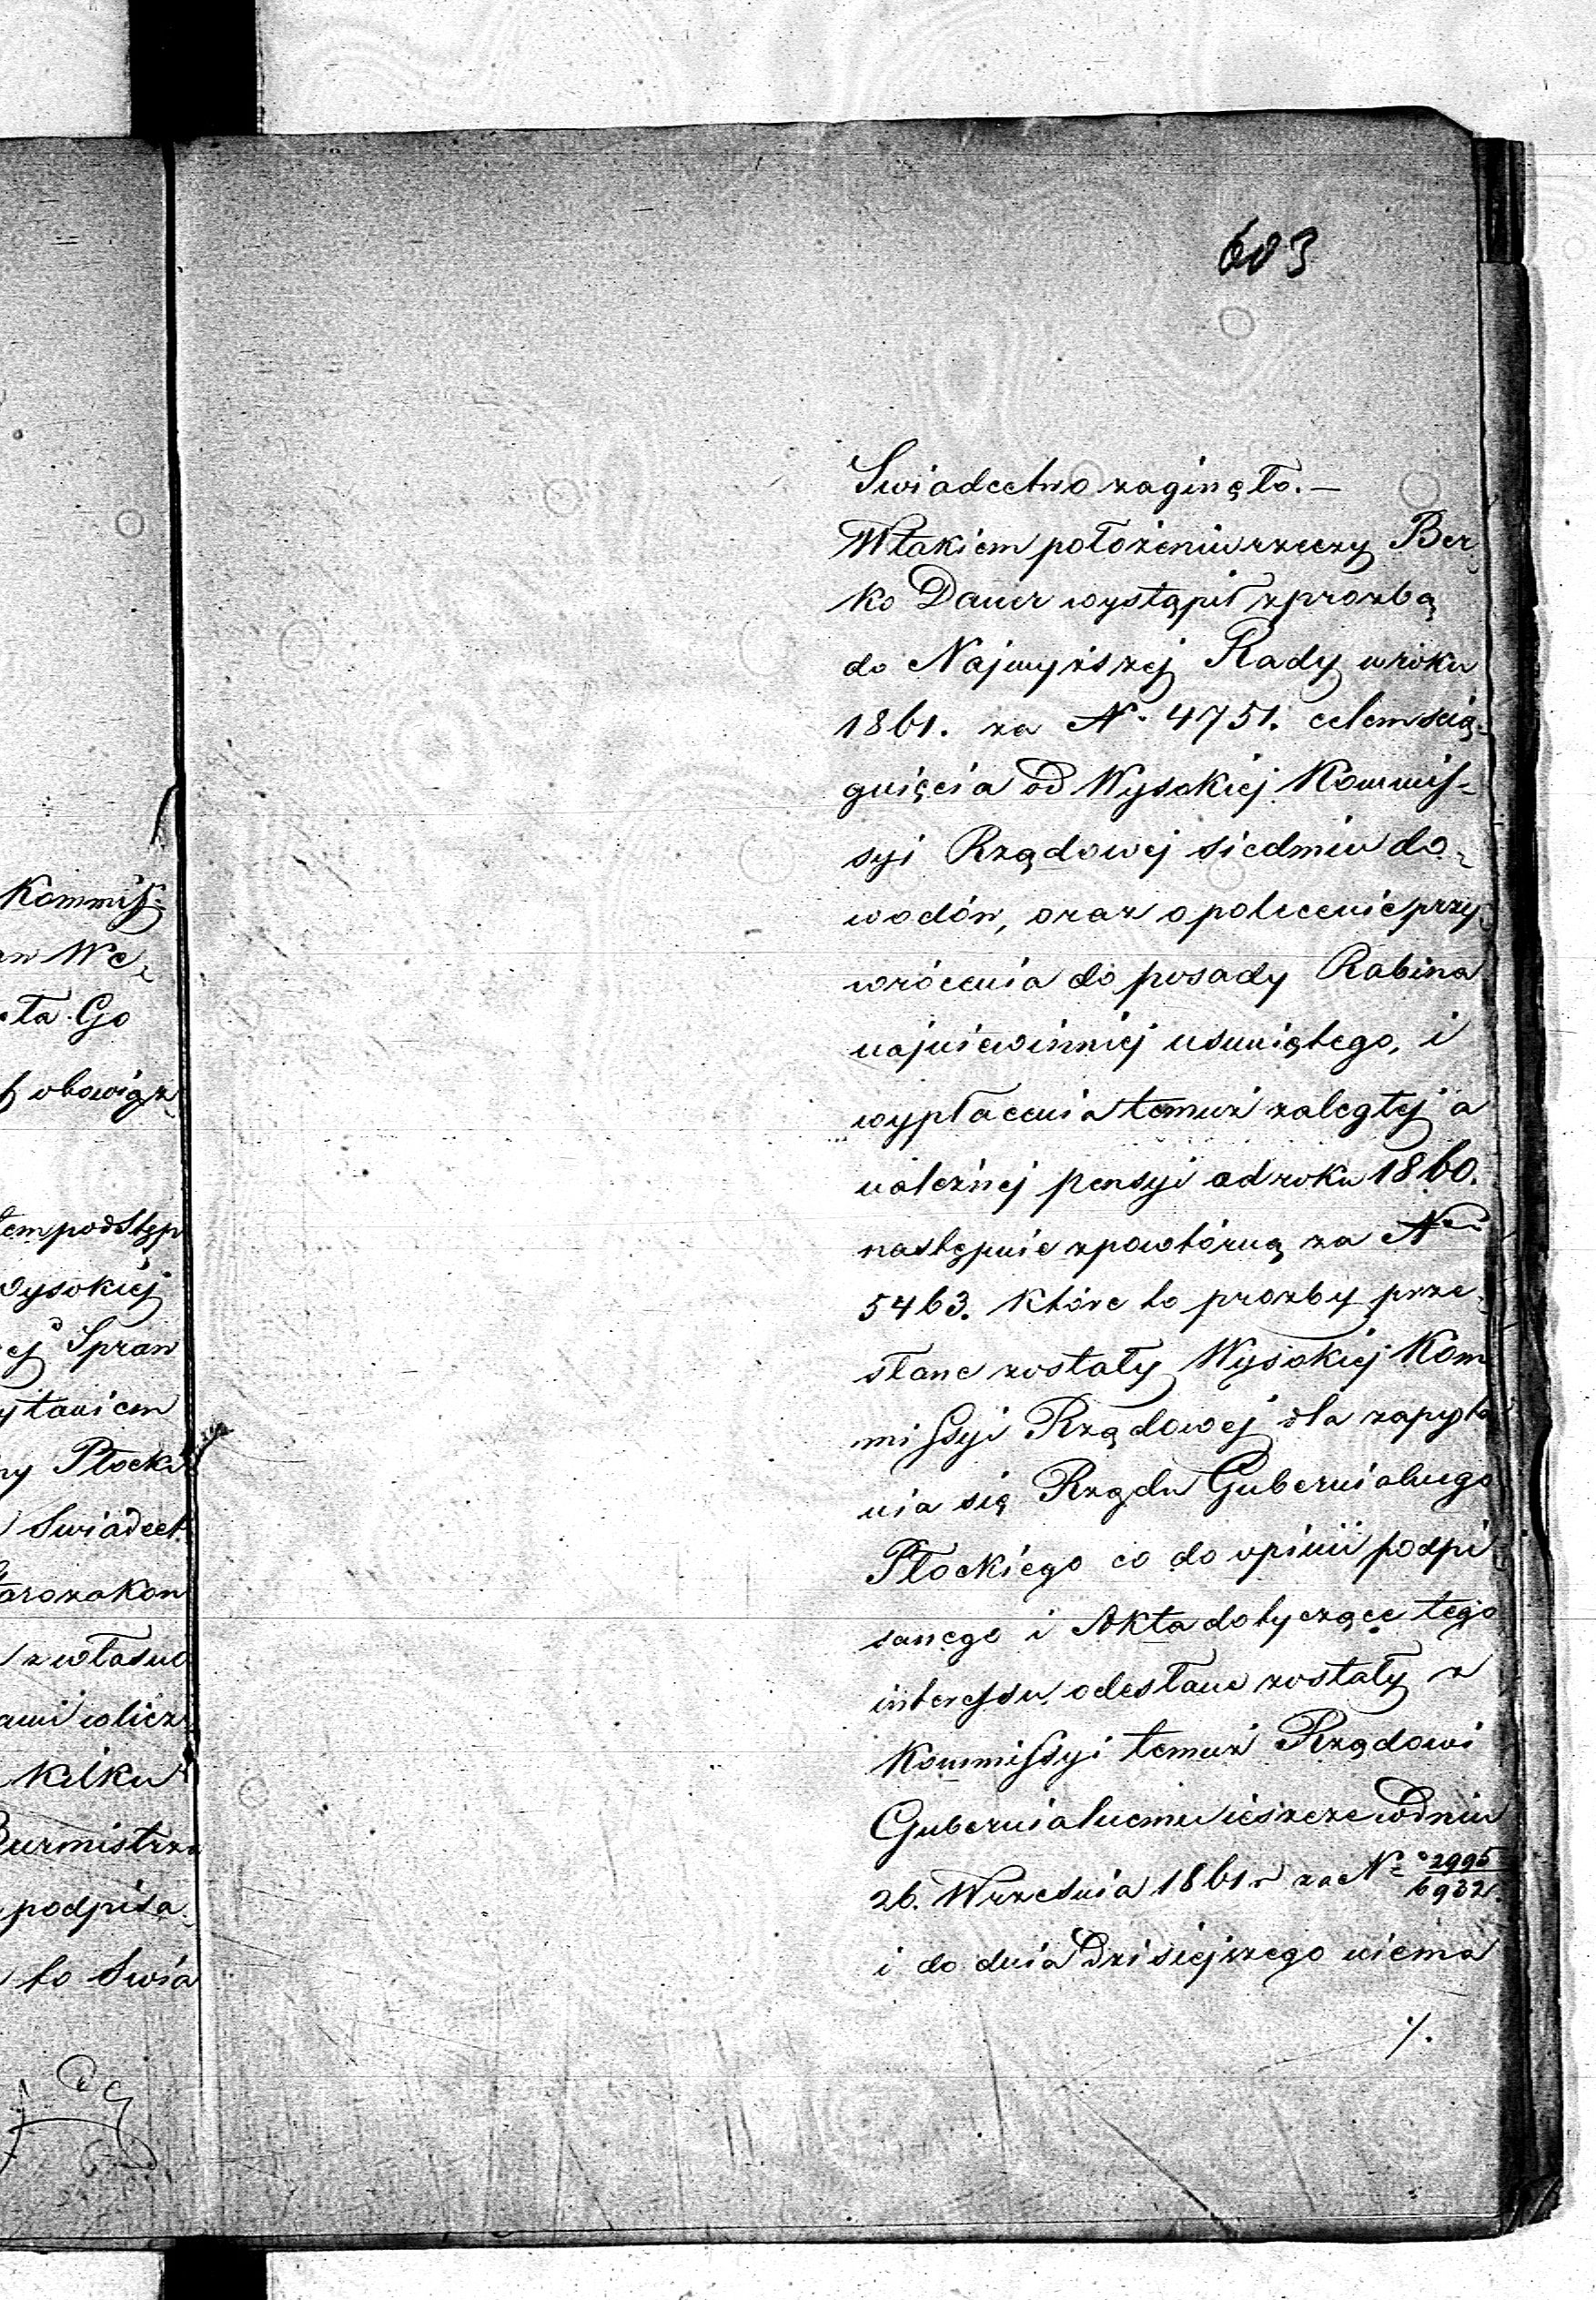 603
Kommis-
w We-
ta Go
obowiąz
tem podstęp
Wysokiej
ej Spraw
ytaniem
ny Płocki
Swiadect
tarozakon
z własne
ami wlicz
kilku
Burmistrza
podpisa-
to Swia
Swiadectwo zaginęło. —
W takiem położeniu rzeczy Ber-
ko Dauer wystąpił z prozbą
do Najwyższej Rady w roku
1861. za N. 4751. celem scią-
gnięcia od Wysokiej Kommis-
syi Rządowej siedmiu do-
wodów, oraz o polecenie przy-
wrócenia do posady Rabina
najniewinniej usuniętego, i
wypłacenia temuż zaległej a
należnej pensyi od roku 1860.
następnie z powtórną za Nr
5463. które to prozby prze-
słane zostały Wysokiej Kom
missyi Rządowej dla zapyta
nia się Rządu Gubernialnego
Płockiego co do opinii podpi
sanego i Akta dotyczące tego
interessu, odesłane zostały z
Kommissyi temuż Rządowi
Gubernialnemu ieszcze w dniu
26. Wrzesnia 1861 r za N° 2995/6932.
i do dnia dzisiejszego niema
./.